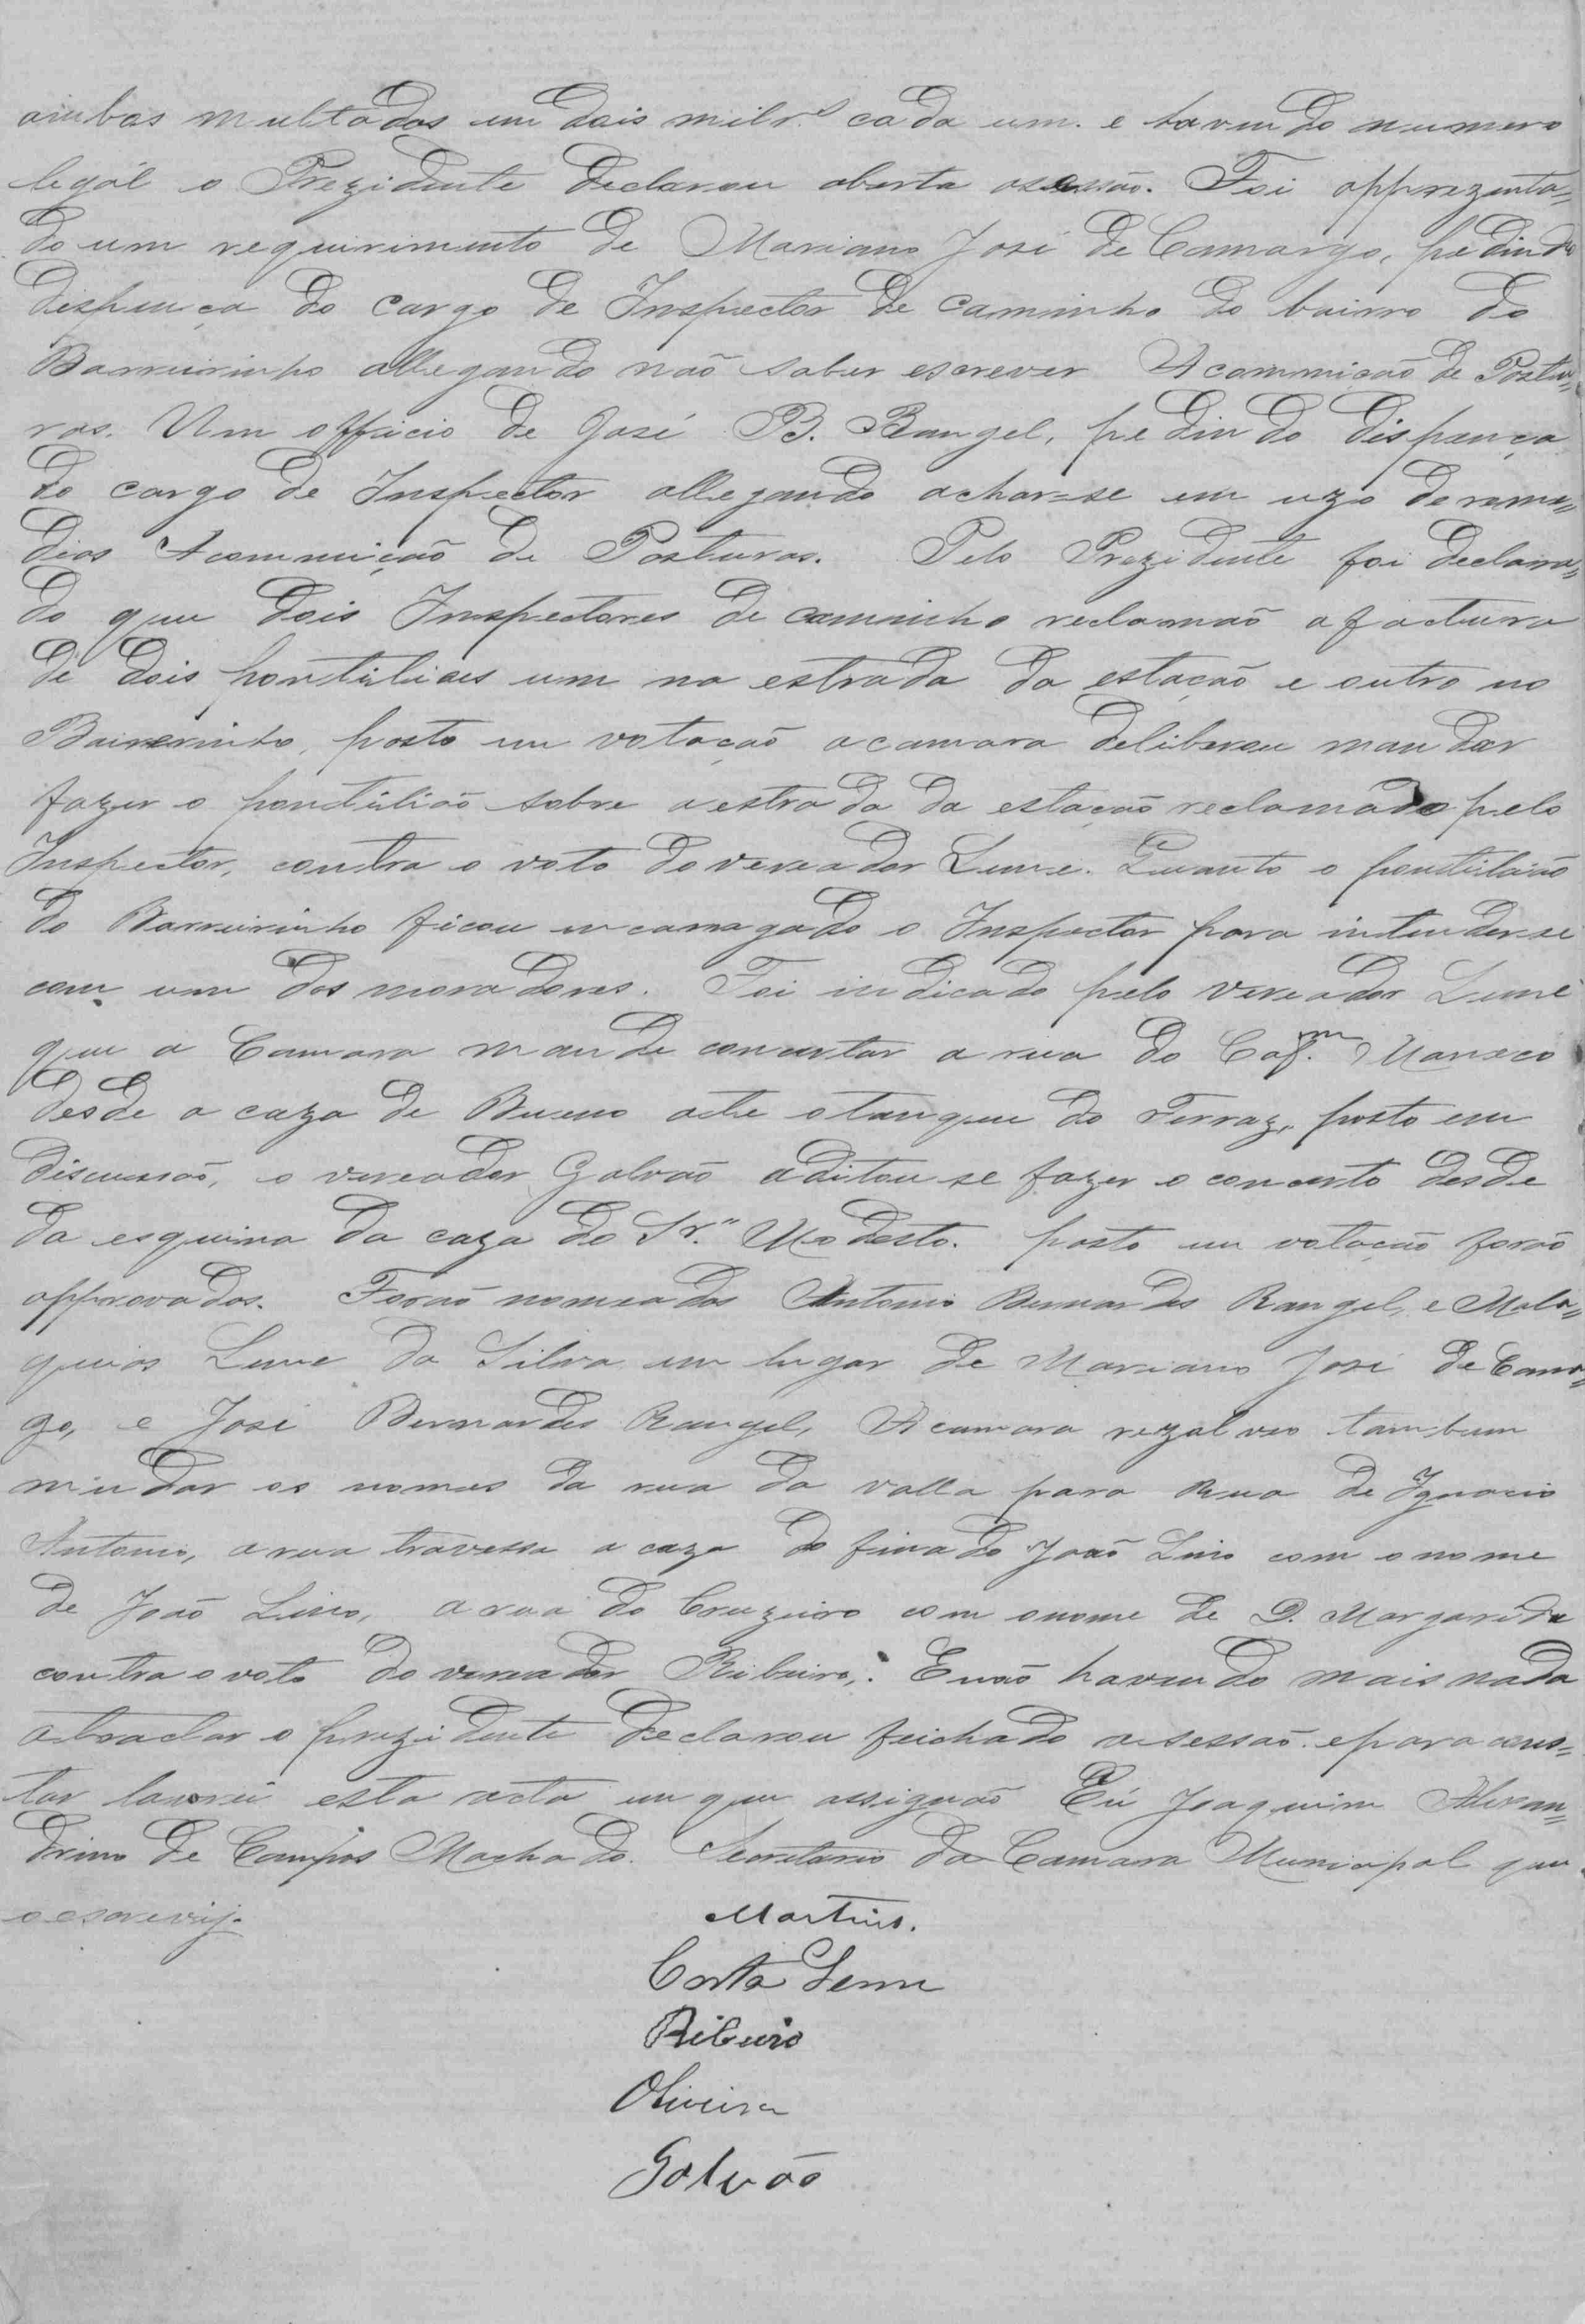 ambos multados em dois milr.s cada um. e havendo numero
legal o Prezidente declarou aberta asessão. Foi apprezenta=
do um requirimento de Mariano José de Camargo, pedindo
dispença do cargo de Inspector de caminho do bairro do
Barreirinho allegando não saber escrever A commição de Postu=
ras. Um officio de José B. Rangel, pedindo dispença
do cargo de Inspector allegando achar=se em uzo de reme=
dios A commição de Posturas. Pelo Prezidente foi declara=
do que dois Inspectores de caminho reclamão a factura
de dois pontilhões um na estrada da estação e outro no
Barrerinho, posto em votação a camara deliberou mandar
fazer o pontilhão sobre a estrada da estação reclamado pelo
Inspector, contra o voto do vereador Leme. Quanto o pontilhão
do Barreirinho ficou encarregado o Inspector para intender-se
com um dos moradores. Foi indicado pelo vereador Leme
que a Camara mande concertar a rua do Cap.m Maneco
desde a caza de Bueno athe o tanque do Ferraz, posto em
discussão, o vereador Galvão aditou se fazer o concerto desde
da esquina da caza do Sr." Modesto. posto em votação forão
approvados. Forão nomeados Antonio Bernardes Rangel, e Mala=
quias Leme da Silva em lugar de Mariano José de Camar=
go, e José Bernardes Rangel, A camara rezolveo tambem
mudar os nomes da rua da valla para Rua de Ignacio
Antonio, a rua travessa a caza do finado João Lino com o nome
de João Lino, a rua do Cruzeiro com o nome de D. Margarida
contra o voto do vereador Ribeiro,. E não havendo mais nada
a tractar o prezidente declarou feichado a sessão. e para cons=
tar lavrei esta acta em que assignão Eu Joaquim Alexan=
drino de Campos Machado. Secretario da Camara Municipal que
o escrevij.
Martins.
Costa Leme
Ribeiro
Oliveira
Galvão